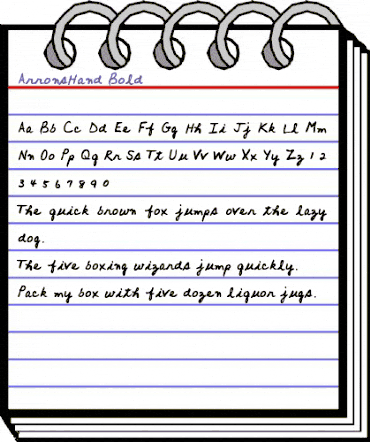 ArronsHand Bold
Aa Bb Cc Dd Ee Ff Gg Hh Ii Jj Kk Ll Mm
Nn Oo Pp Qq Rr Ss Tt Uu Vv Ww Xx Yy Zz 1 2
3 4 5 6 7 8 9 0
The quick brown fox jumps over the lazy
dog.
The five boxing wizards jump quickly.
Pack my box with five dozen liquor jugs.